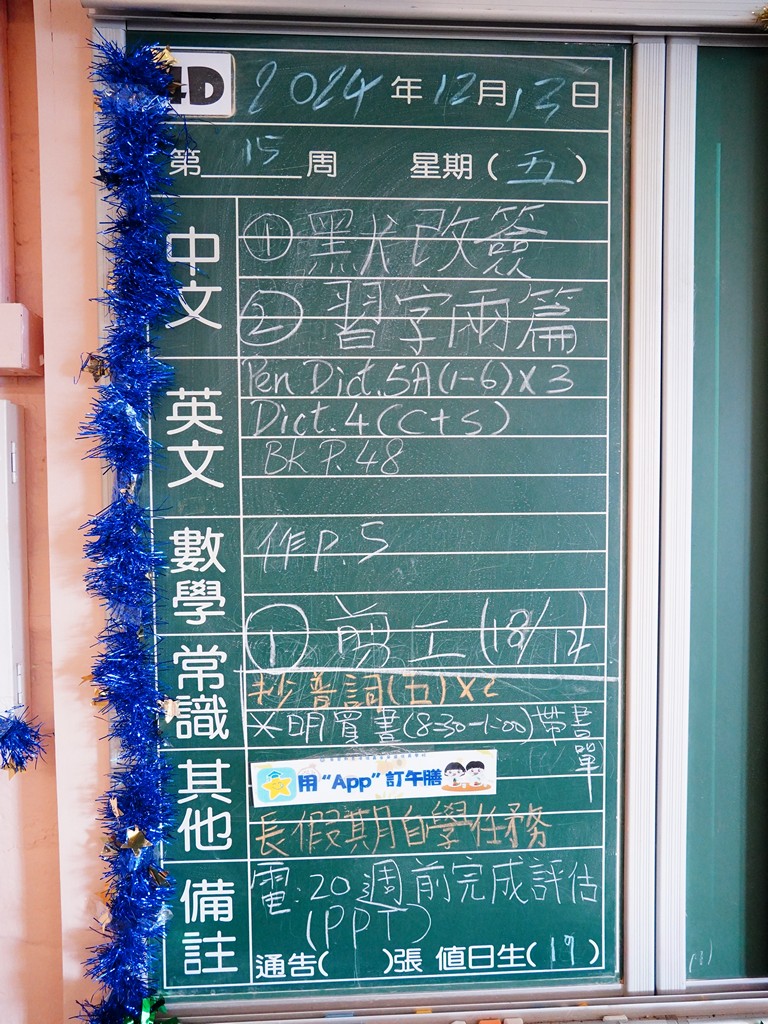 4D 2024年12月13日
第15周 星期(五)
中文
① 默片改簽
② 習字兩篇
英文
Pen Dict.5A(1-6)x3
Dict.4(C+S)
BK P.48
數學
作P.5
常識
① 剪工(18/12)
抄普詞(五)x2
※明買書(8:30-1:00)帶書單
其他
用"App"訂午膳
長假期自學任務
備註
電:20週前完成評估
(PPT)
通告( )張 值日生(19)